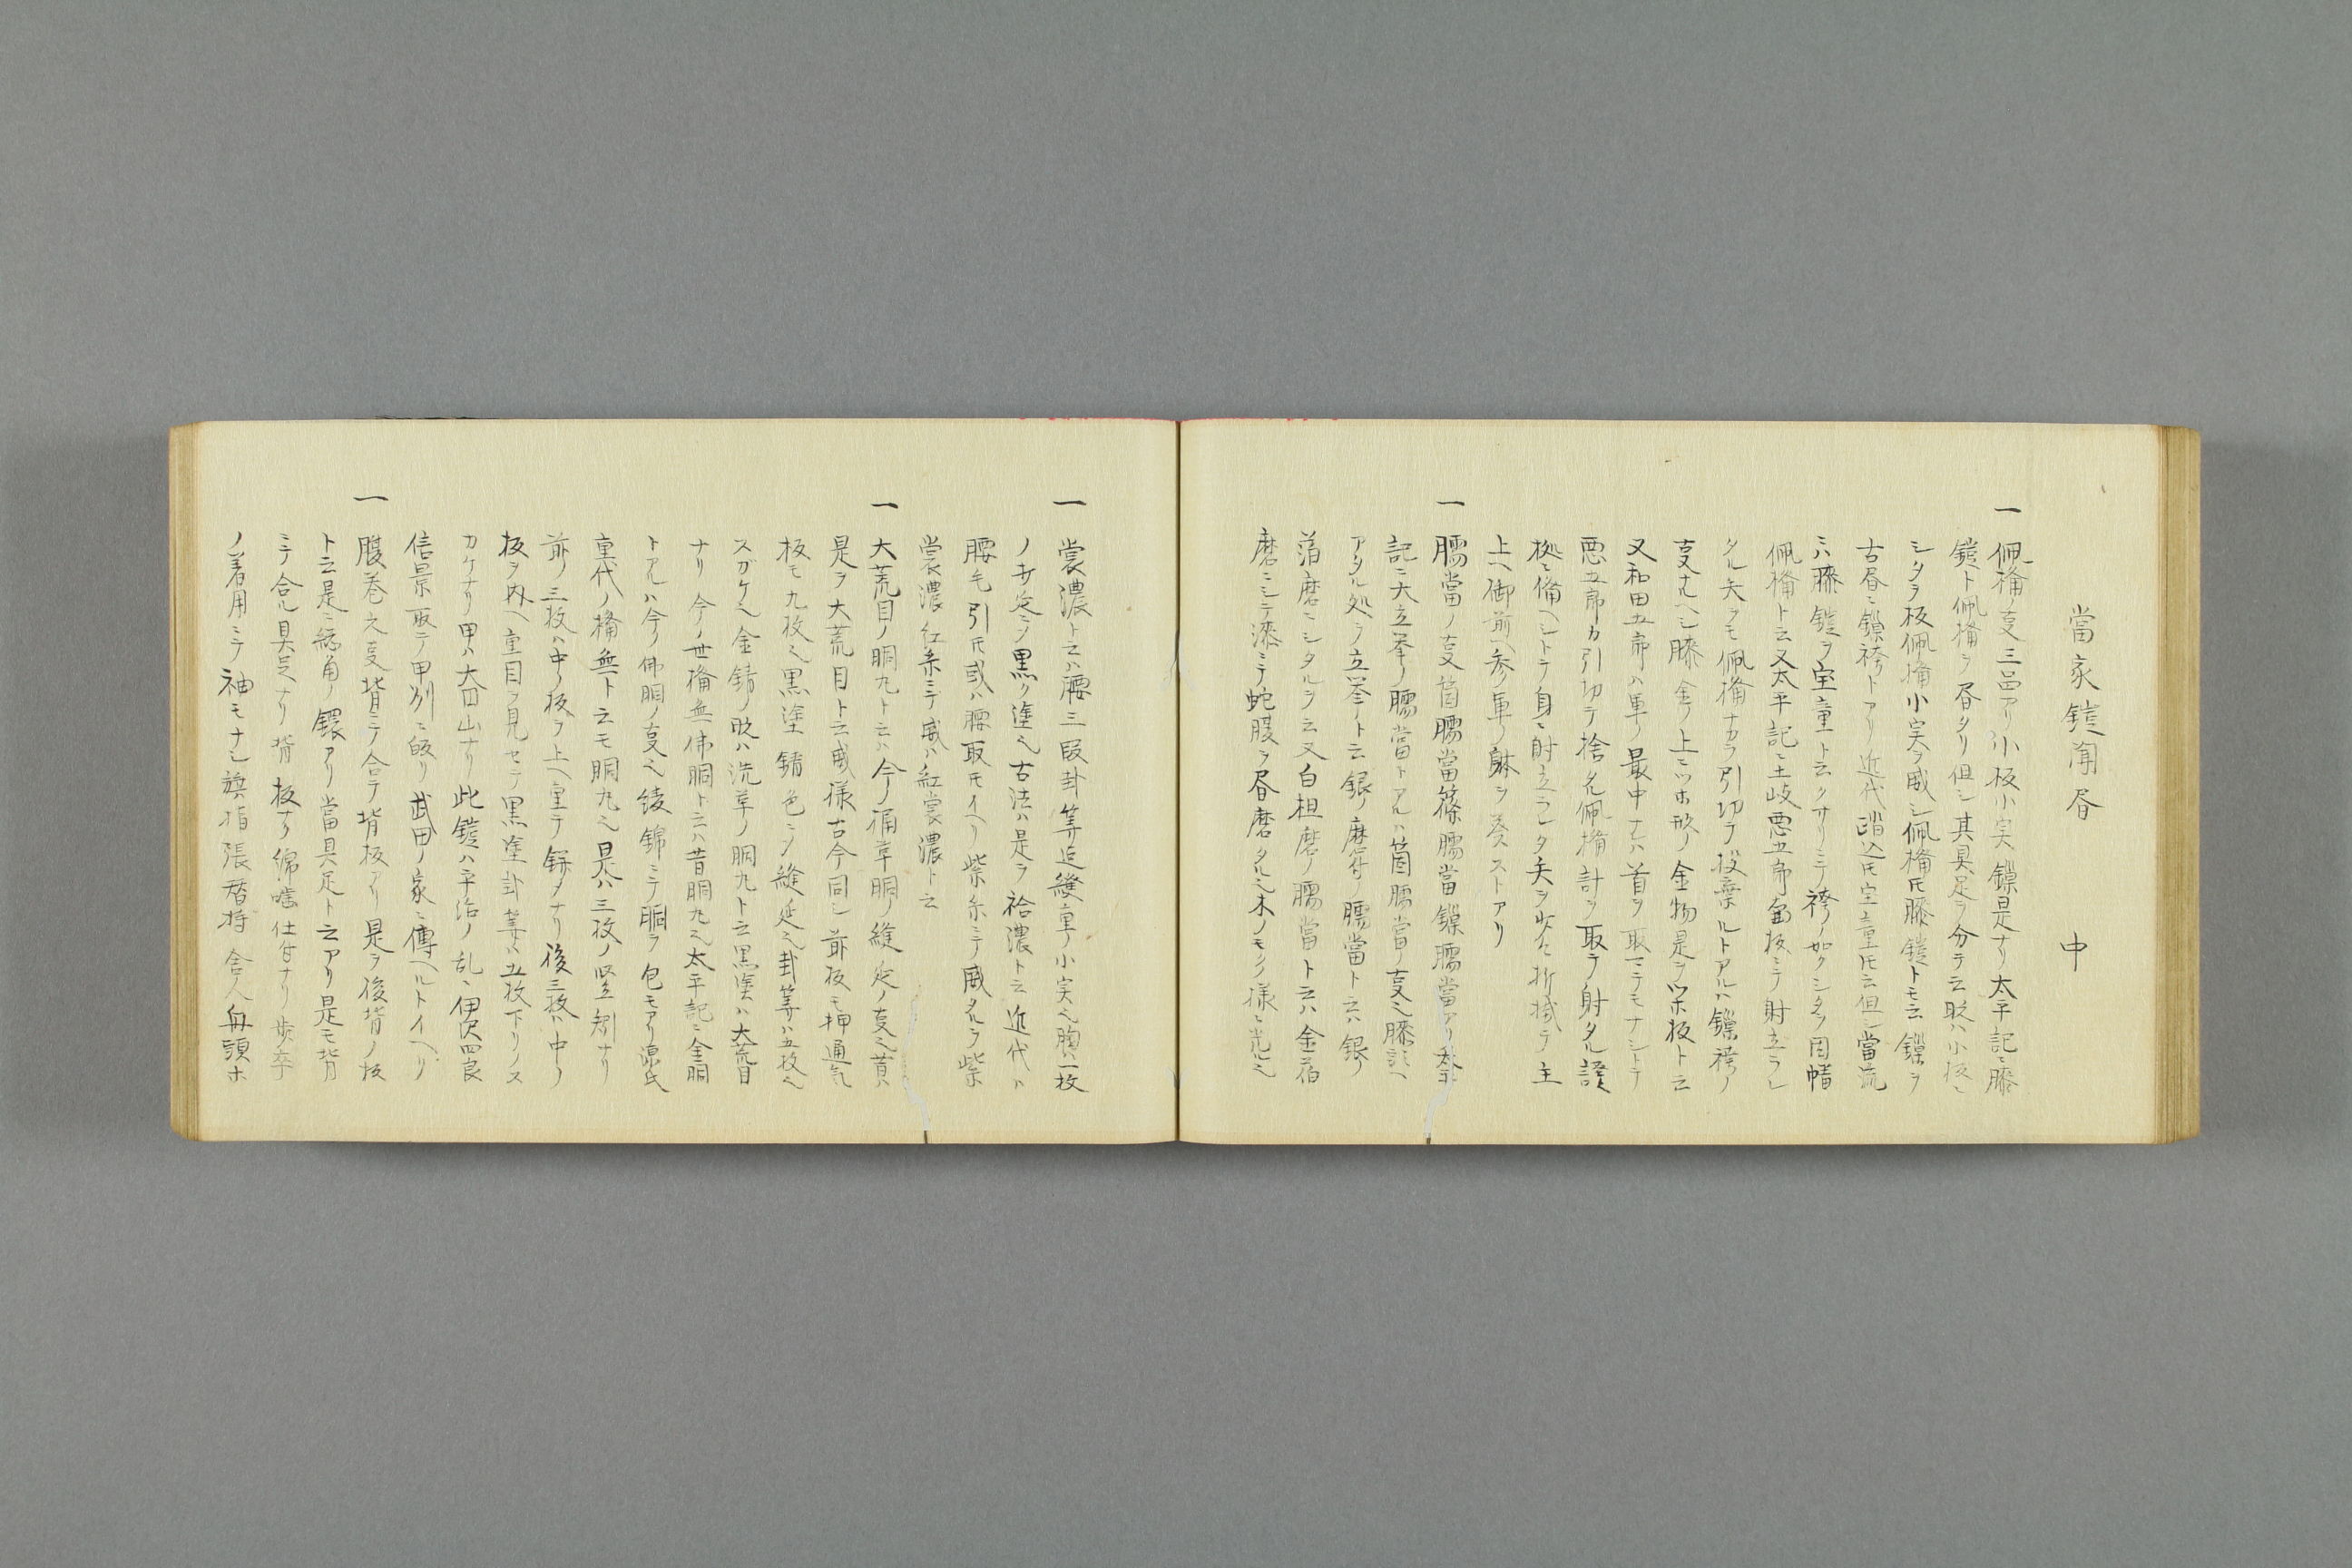 當家鎧聞書 中
一 佩楯ノ叓三品アリ小板小実鏁是ナリ太平記ニ膝
鎧ト佩楯ヲ書タリ但シ其具足ヲ分テ云時ハ小板ニ
シタヲ板佩楯小実ヲ威シ佩楯トモ膝鎧トモ云鏁ヲ
古書ニ鏁袴トアリ近代踏込トモ宝童トモ云但シ當流
ニハ膝鎧ヲ宝童ト云クサリニテ袴ノ如クシタヲ因幡
佩楯ト云又太平記ニ土岐悪五郎 板ニテ射立ラレ
タル矢ヲモ佩楯ナカラ引切テ投棄ルトアルハ鏁袴ノ
叓ナルヘシ膝金ノ上ニツホ形ノ金物是ヲツホ板ト云
又和田五郎ハ軍ノ最中ナレハ首ヲ取マテモナシトテ
悪五郎カ引切テ捨タル佩楯計ヲ取テ射タル證
拠ニ備ヘシトテ身ニ射立ラレタ矢ヲ少々折掛テ主
上ヘ御前ヘ参軍ノ躰ヲ奏ストアリ
一 臑當ノ叓筒臑當篠臑當鏁臑當アリ太平
記ニ大立挙ノ臑當トアルハ筒臑當ノ叓也膝頭ヘ
アタル処ヲ立挙ト云銀ノ磨付ノ臑當ト云ハ銀ノ
箔磨ニシタルヲ云又白檀磨ノ臑當ト云ハ金箔
磨ニシテ漆ニテ蛇腹ヲ書磨タル也木ノモク様ニ光也
一 裳濃ト云ハ腰三段卦算迄縫重ノ小実也胸ハ一枚
ノ 延ニテ黒ク塗也古法ハ是ヲ袷濃ト云近代ハ
腰毛引トモ或ハ腰取モイヘリ紫糸ニテ威タルヲ紫
裳濃紅糸ニテ威ハ紅裳濃ト云
一 大荒目ノ胴丸ト云ハ今ノ桶革胴ノ縫延ノ叓也昔ハ
是ヲ大荒目ト云威様古今同シ前板モ押通シ
板モ九枚也黒塗錆色ニテ縫延也卦算ハ五枚也
スガケ也金錆ノ時ハ洗革ノ胴丸ト云黒塗ハ大荒目
ナリ今ノ世楯無佛胴ト云ハ昔胴丸也太平記ニ金胴
トアルハ今ノ佛胴ノ叓也綾錦ニテ胴ヲ包モアリ源氏
重代ノ楯無ト云モ胴丸也是ハ三枚ノ竪矧ナリ
前ノ三枚ハ中ノ板ヲ上ヘ重テ餅〆ナリ後三枚ハ中ノ
板ヲ内ヘ重目ヲ見セテ黒塗卦算ハ五枚下リノス
カケナリ甲ハ大日山ナリ此鎧ハ平治ノ乱ニ伊沢四良
信景取テ甲州ニ皈リ武田ノ家ニ傳ヘルトイヘリ
一 腹巻之叓背ニテ合テ背板アリ是ヲ後背ノ板
ト云是ニ総角ノ鐶アリ當具足ト云アリ是モ背
ニテ合ル具足ナリ背板ナク綿噛仕付ナリ歩卒
ノ着用ニテ袖モナシ旗指張替持舎人舟頭ホ